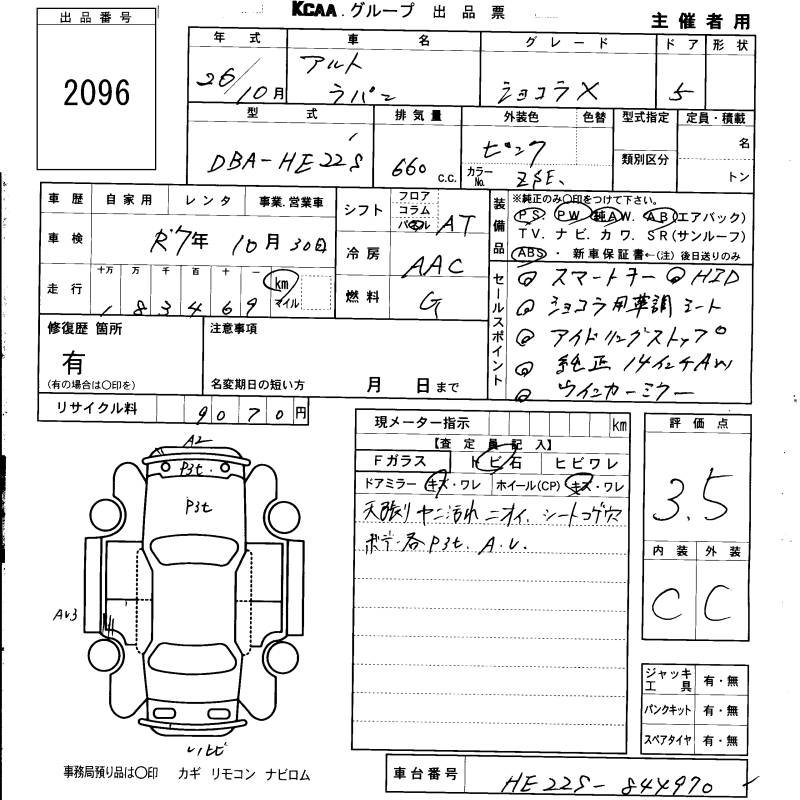 KCAA グループ 出品票
主催者用
出品番号
2096
年式 車名 グレード ドア 形状
26/10月 アルト ラパン ショコラX 5
型式 排気量 外装色 色替 型式指定 定員・積載
DBA-HE22S 660 c.c. ピンク 類別区分 名
カラーNo. ZSE トン
車歴 自家用 レンタ 事業.営業車
車検 R7年 10月 30日
走行 十万 万 千 百 十 一
183469 km マイル
シフト フロア コラム パネル AT
冷房 AAC
燃料 G
装備品
※純正のみ〇印をつけて下さい。
P.S. P.W 純A.W. A.B(エアバック)
T.V. ナビ. カワ. S.R(サンルーフ)
ABS ・ 新車保証書←(注) 後日送りのみ
セールスポイント
スマートキー HID
ショコラ用革調シート
アイドリングストップ
純正14インチAW
ウインカーミラー
修復歴 箇所
有
(有の場合は〇印を)
注意事項
名変期日の短い方 月 日まで
リサイクル料 9070円
現メーター指示 km
【査定員記入】
Fガラス トビ石 ヒビワレ
ドアミラー キズ・ワレ ホイール(CP) キズ・ワレ
天張りヤニ汚れ ニオイ. シートコゲ穴
ボデー各P3t. A.U.
評価点
3.5
内装 外装
C C
A2
P3t.
P3t
AU3
ジャッキ工具 有・無
パンクキット 有・無
スペアタイヤ 有・無
事務局預り品は〇印 カギ リモコン ナビロム
車台番号 HE22S-844970